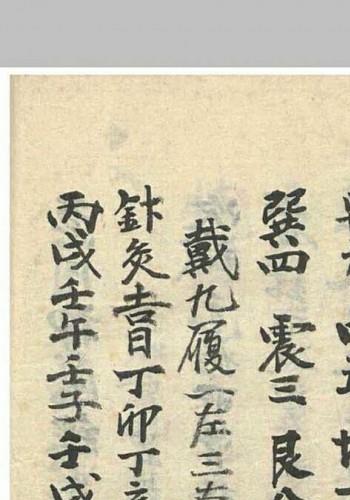 巽四 震三 艮
戴九履一左三右
針灸吉日丁卯丁亥
丙戌壬午壬子壬戌